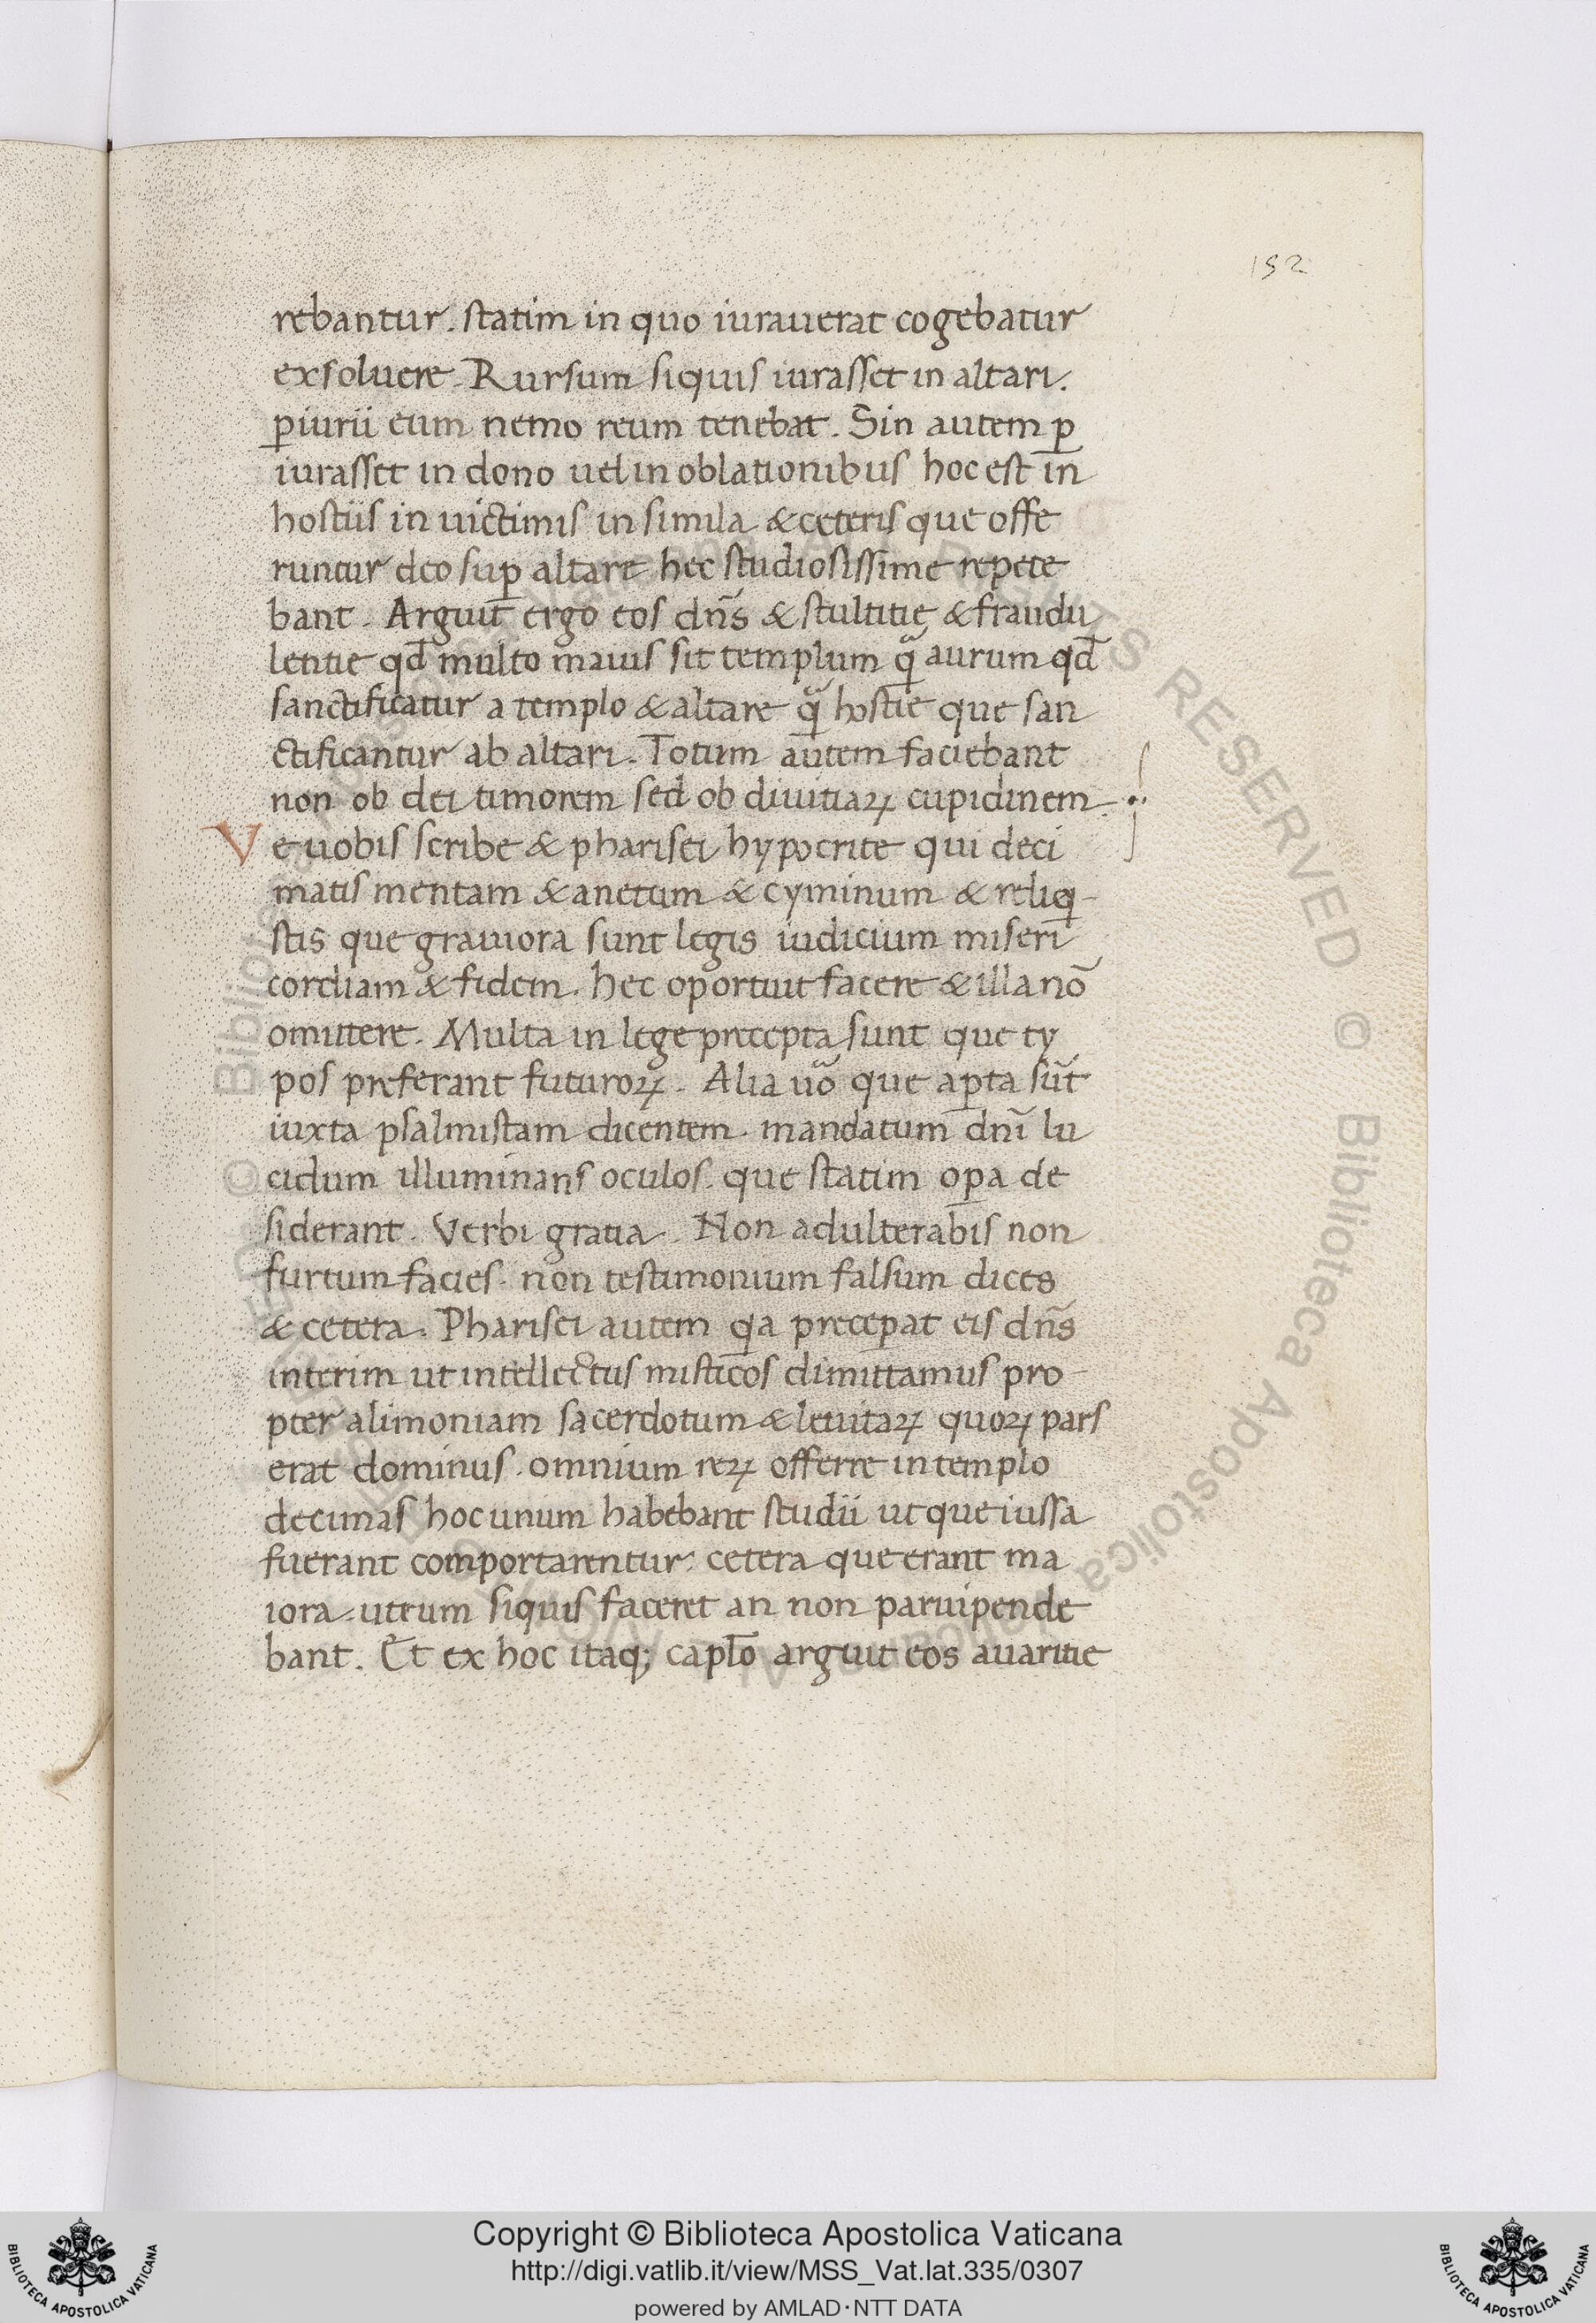 192
rebantur. statim in quo iurauerat cogebatur
exsoluere. Rursum siquis iurasset in altari.
ꝑiurii eum nemo reum tenebat. Sin autem ꝑ
iurasset in dono uel in oblationibus hoc est in
hostiis in uictimis in simila & ceteris que offe
runtur deo suꝑ altare hec studiosissime repete
bant. Arguit ergo eos dn̄s & stultitię & fraudu
lentie qd̄ multo maius sit templum qᷓ aurum qd̄
sanctificatur a templo & altare qᷓ hostie que san
ctificantur ab altari. Totum autem faciebant
non ob dei timorem sed ob diuitiaꝝ cupidinem.
Ve uobis scribe & pharisei hypocrite qui deci
matis mentam & anetum & cyminum & reliq-
stis que grauiora sunt legis iudicium miseri
cordiam & fidem. hec oportuit facere & illa nō
omittere. Multa in lege precepta sunt que ty
pos preferant futuroꝝ. Alia uoᷓ que aꝑta sūt
iuxta psalmistam dicentem. mandatum dnī lu
cidum illuminans oculos. que statim oꝑa de
siderant. Verbi gratia. Non adulterabis non
furtum facies. non testimonium falsum dices
& cetera. Pharisei autem qa preceꝑat eis dn̄s
interim ut intellectus misticos dimittamus pro-
pter alimoniam sacerdotum & leuitaꝝ quoꝝ pars
erat dominus. omnium reꝝ offerre in templo
decimas hoc unum habebant studii ut que iussa
fuerant comportarentur. cetera que erant ma
iora. utrum siquis faceret an non paruipende
bant. Et ex hoc itaq; capl̄o arguit eos auaritie
© Biblioteca Apostolica Vaticana ALL RIGHTS RESERVED © Biblioteca Apostolica Vaticana
Copyright © Biblioteca Apostolica Vaticana
http://digi.vatlib.it/view/MSS_Vat.lat.335/0307
powered by AMLAD·NTT DATA
BIBLIOTECA APOSTOLICA VATICANA
BIBLIOTECA APOSTOLICA VATICANA